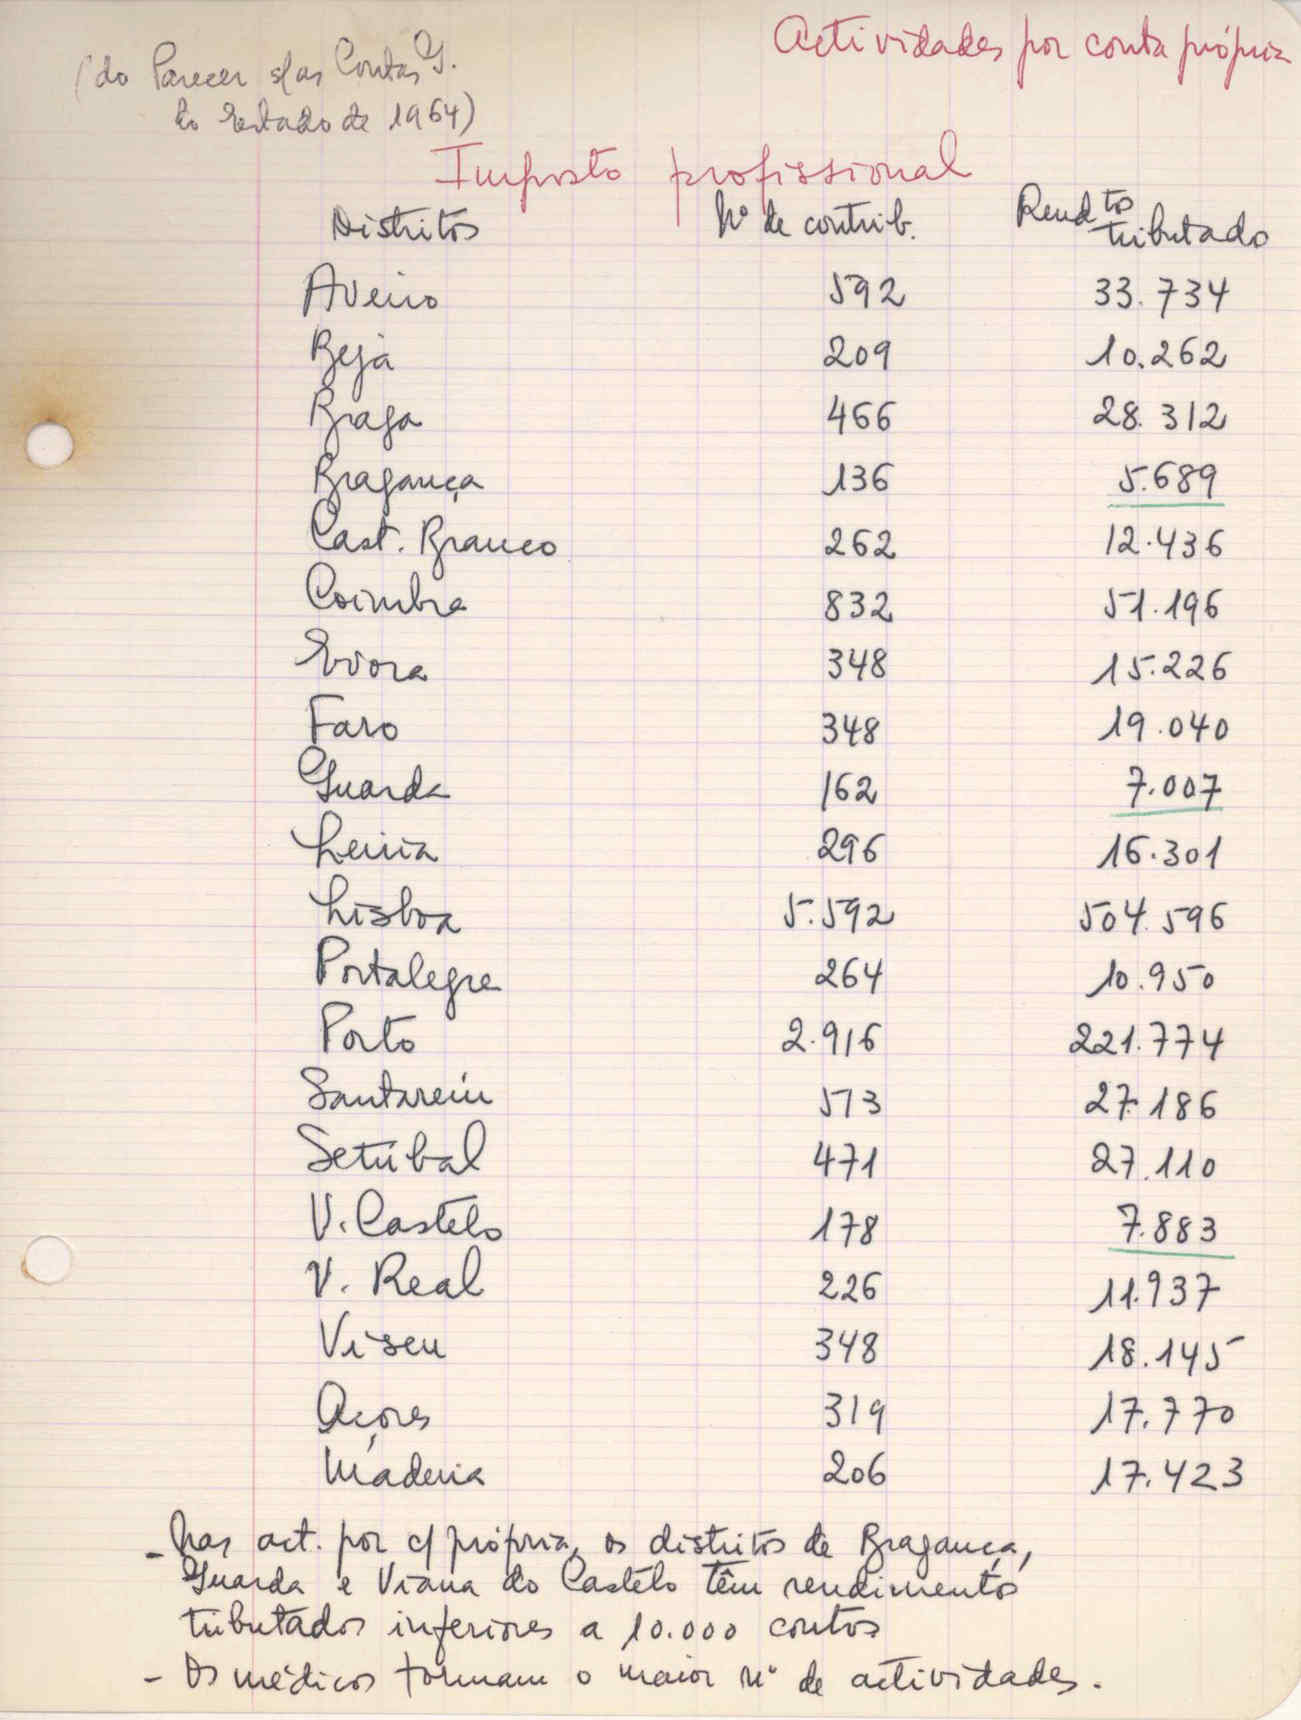 Actividades por conta própria
(do Parecer s/as Contas G.
do Estado de 1964)
Imposto profissional
Distritos Nº de contrib. Rendtos tributado
Aveiro 592 33.734
Beja 209 10.262
Braga 466 28.312
Bragança 136 5.689
Cast. Branco 262 12.436
Coimbra 832 51.196
Evora 348 15.226
Faro 348 19.040
Guarda 162 7.007
Leiria 296 16.301
Lisboa 5.592 504.596
Portalegre 264 10.950
Porto 2.916 221.774
Santarém 513 27.186
Setúbal 471 27.110
V. Castelo 178 7.883
V. Real 226 11.937
Viseu 348 18.145
Açores 319 17.770
Madeira 206 17.423
- Nas act. por c/ própria, os distritos de Bragança,
Guarda e Viana do Castelo têm rendimentos
tributados inferiores a 10.000 contos
- Os médicos formam o maior nº de actividades.